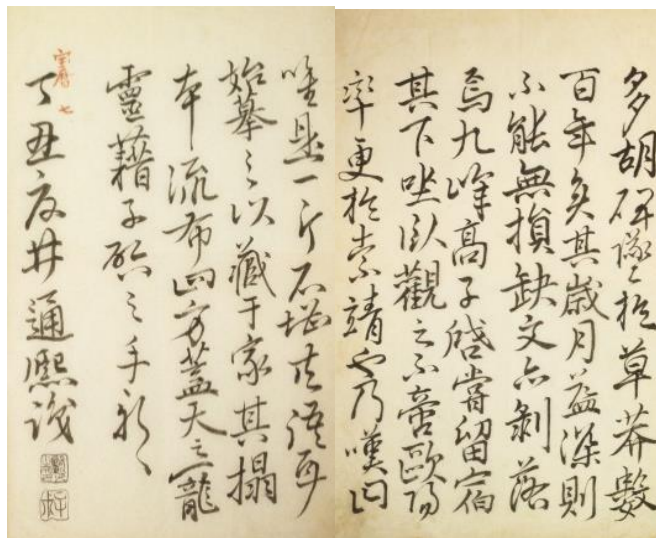 多胡碑隊之於草莽數
百年矣其歲月益深則
不能無損缺文亦剝落
焉九峰高子啓嘗留宿
其下坐臥觀之不啻歐陽
率更於索靖也乃嘆曰
唯是一片石堪共語耳
始摹之以藏于家其搨
本流布四方蓋天之寵
靈藉子啓之手
宝暦七
丁丑夏井通熙識